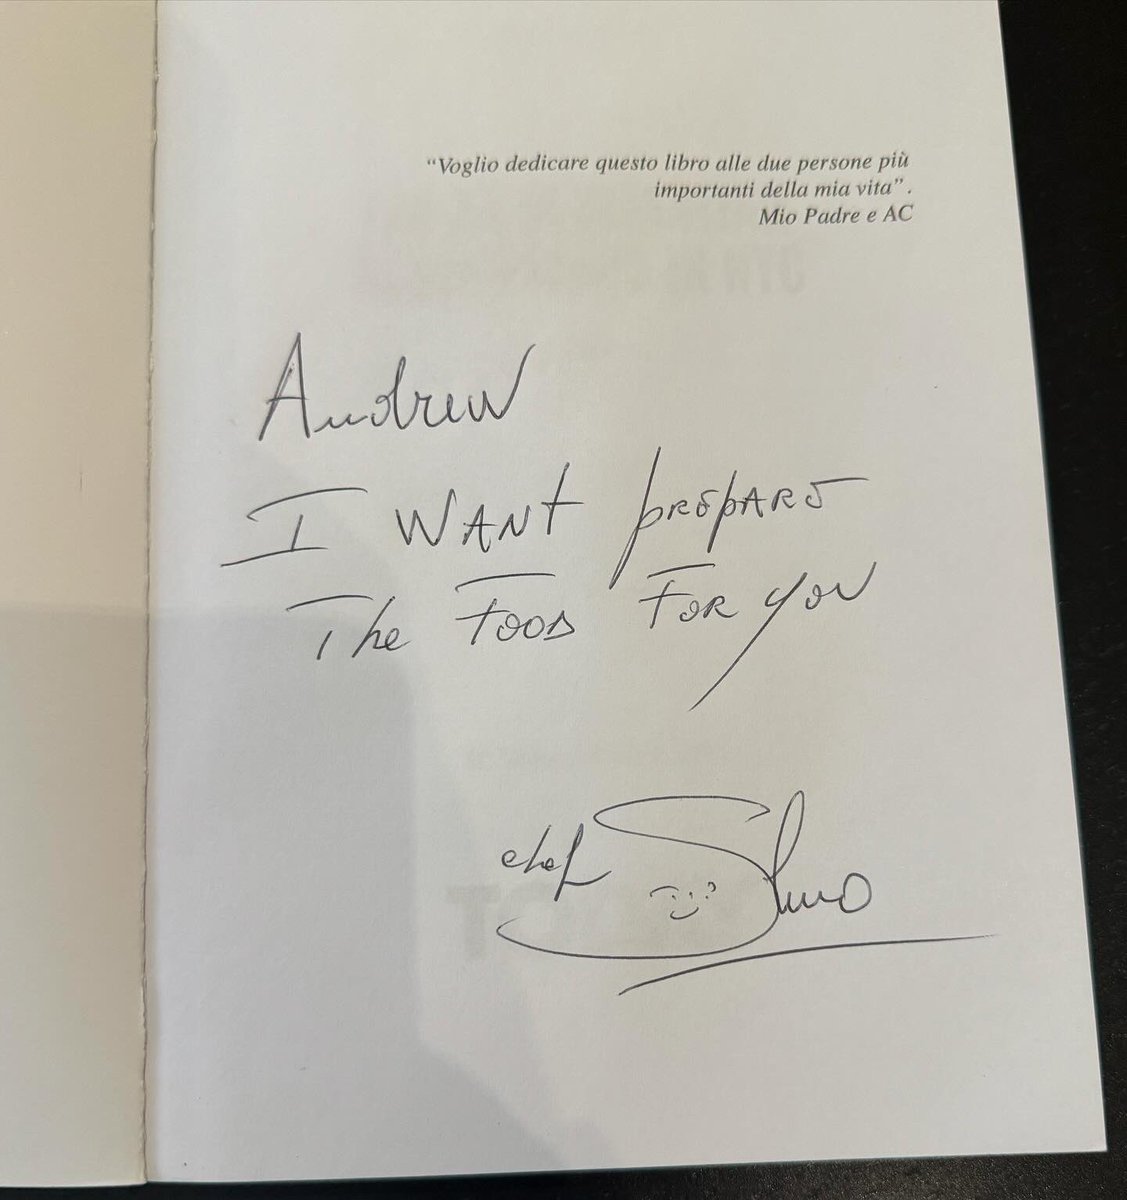 “Voglio dedicare questo libro alle due persone più
importanti della mia vita”.
Mio Padre e AC
Andrew
I WANT prepare
The FOOD FOR you
chef